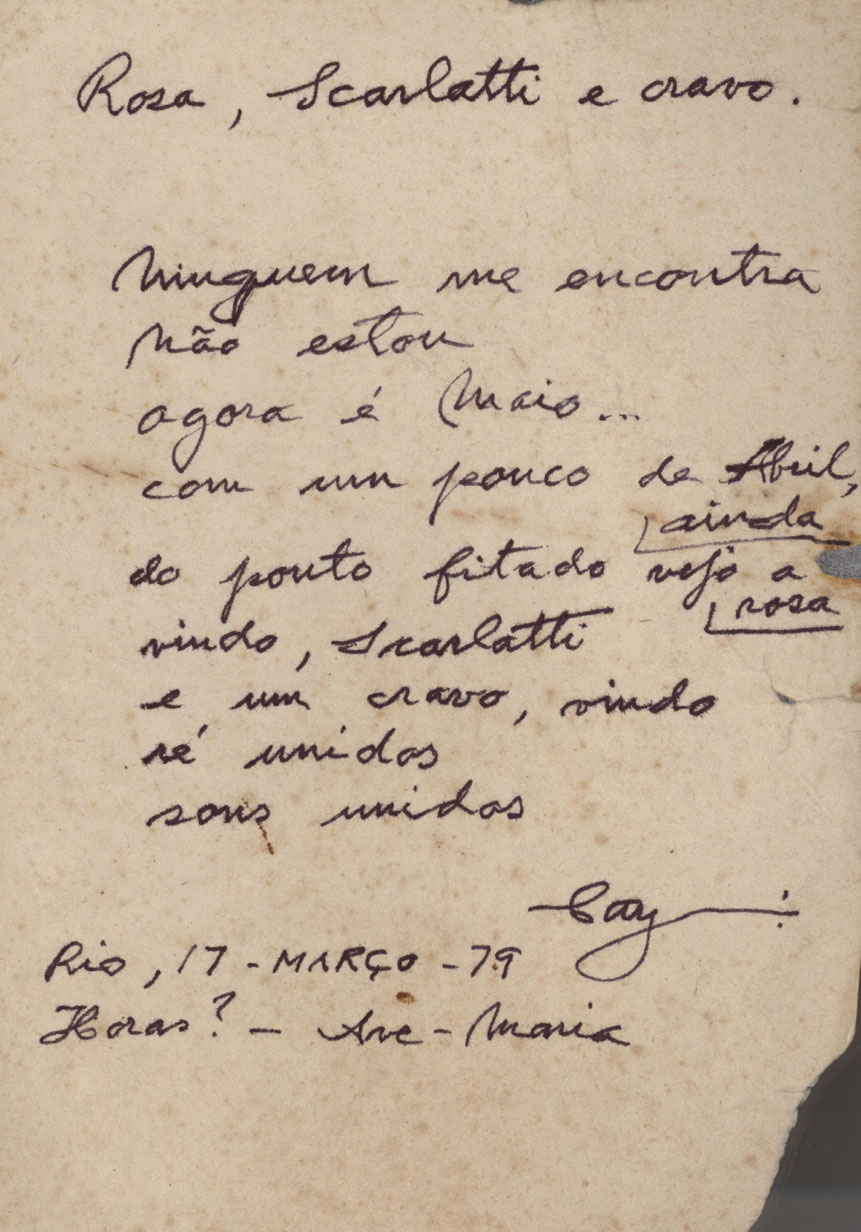 Rosa, Scarlatti e cravo.
Ninguem me encontra
não estou
agora é Maio...
com um pouco de Abril,
ainda
do ponto fitado vejo a
rosa
vindo, Scarlatti
e um cravo, vindo
ré unidos
sons unidos
Rio, 17-MARÇO-79
Horas? - Ave-Maria